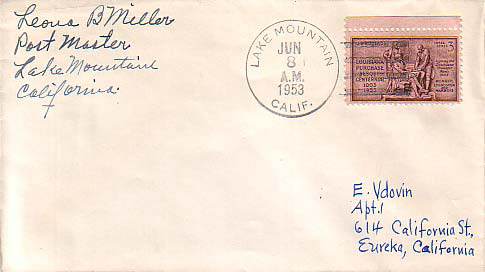 Leona B Miller
Post Master
Lake Mountain
California
LAKE MOUNTAIN
JUN
8
A.M.
1953
CALIF.
3
LOUISIANA
PURCHASE
SESQUI-
CENTENNIAL
1803
1953
E. Vdovin
Apt. 1
614 California St.,
Eureka, California